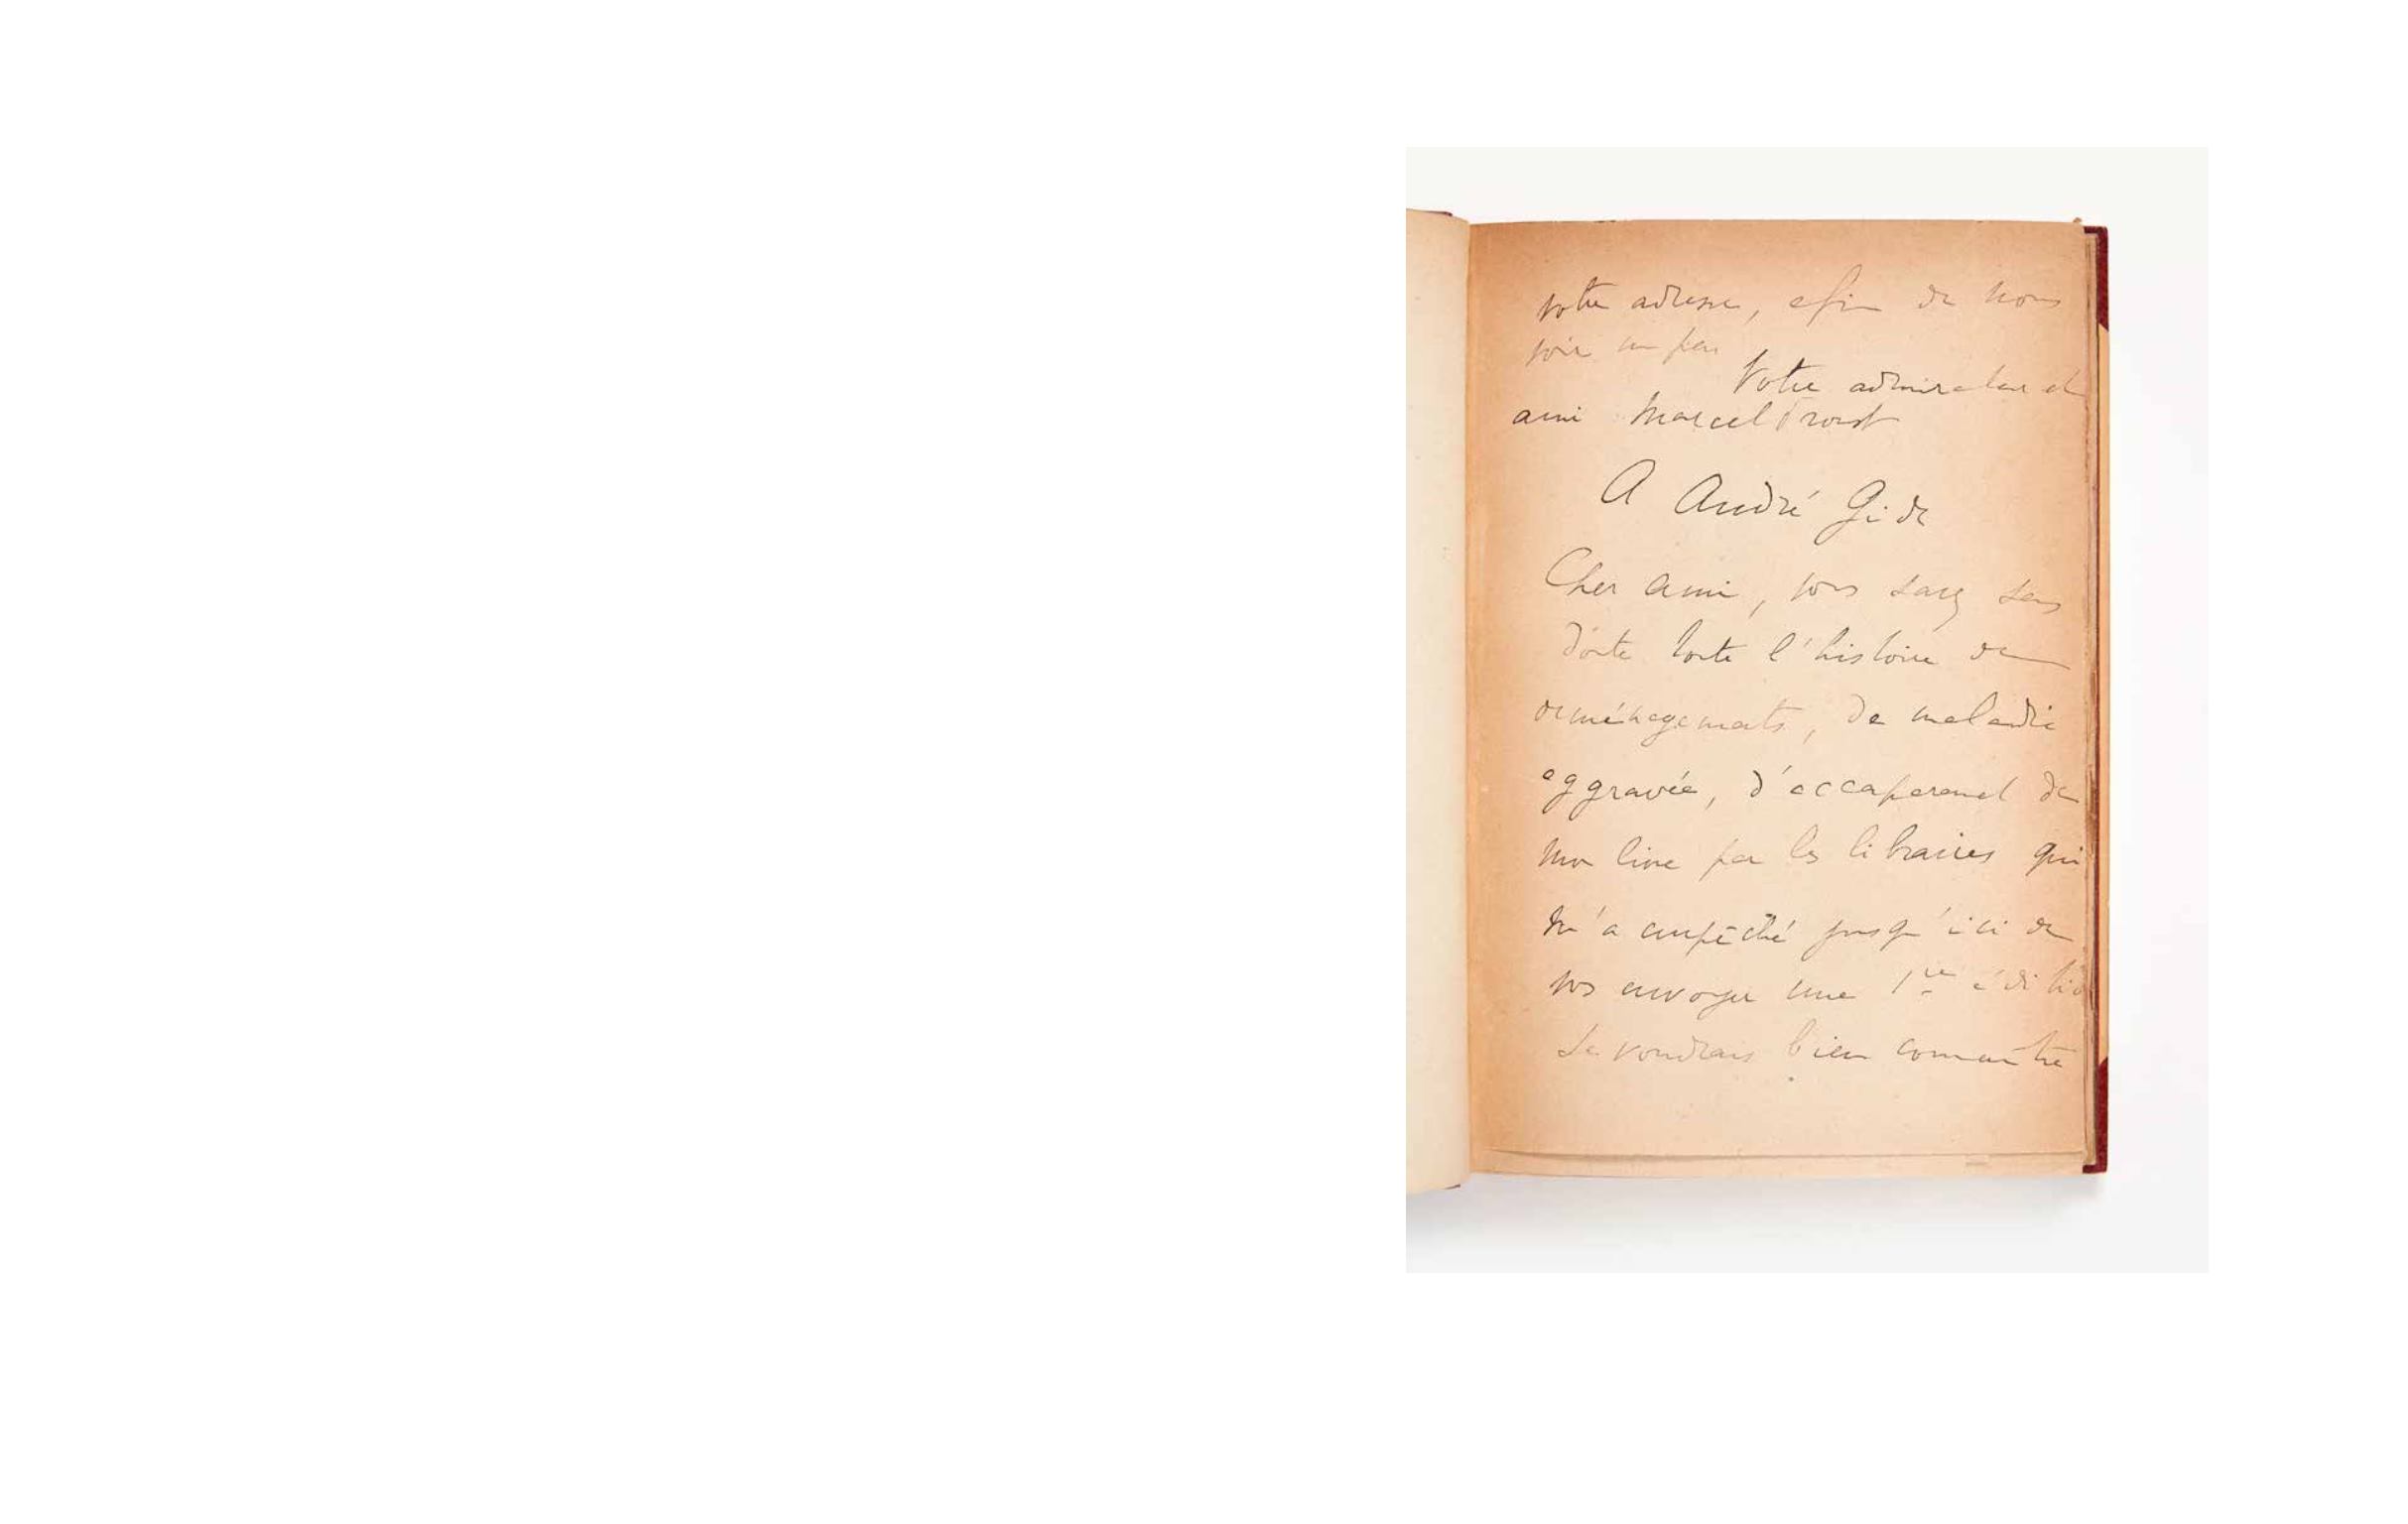 votre adresse, afin de nous
voir un peu
Votre admirateur et
ami Marcel Proust
A André Gide
Cher ami, vous savez sans
doute toute l'histoire de
déménagements, de maladie
aggravée, d'accaparement de
mon livre par les libraires qui
m'a empêché jusqu'ici de
vous envoyer une 1re éditio
Je voudrais bien connaître